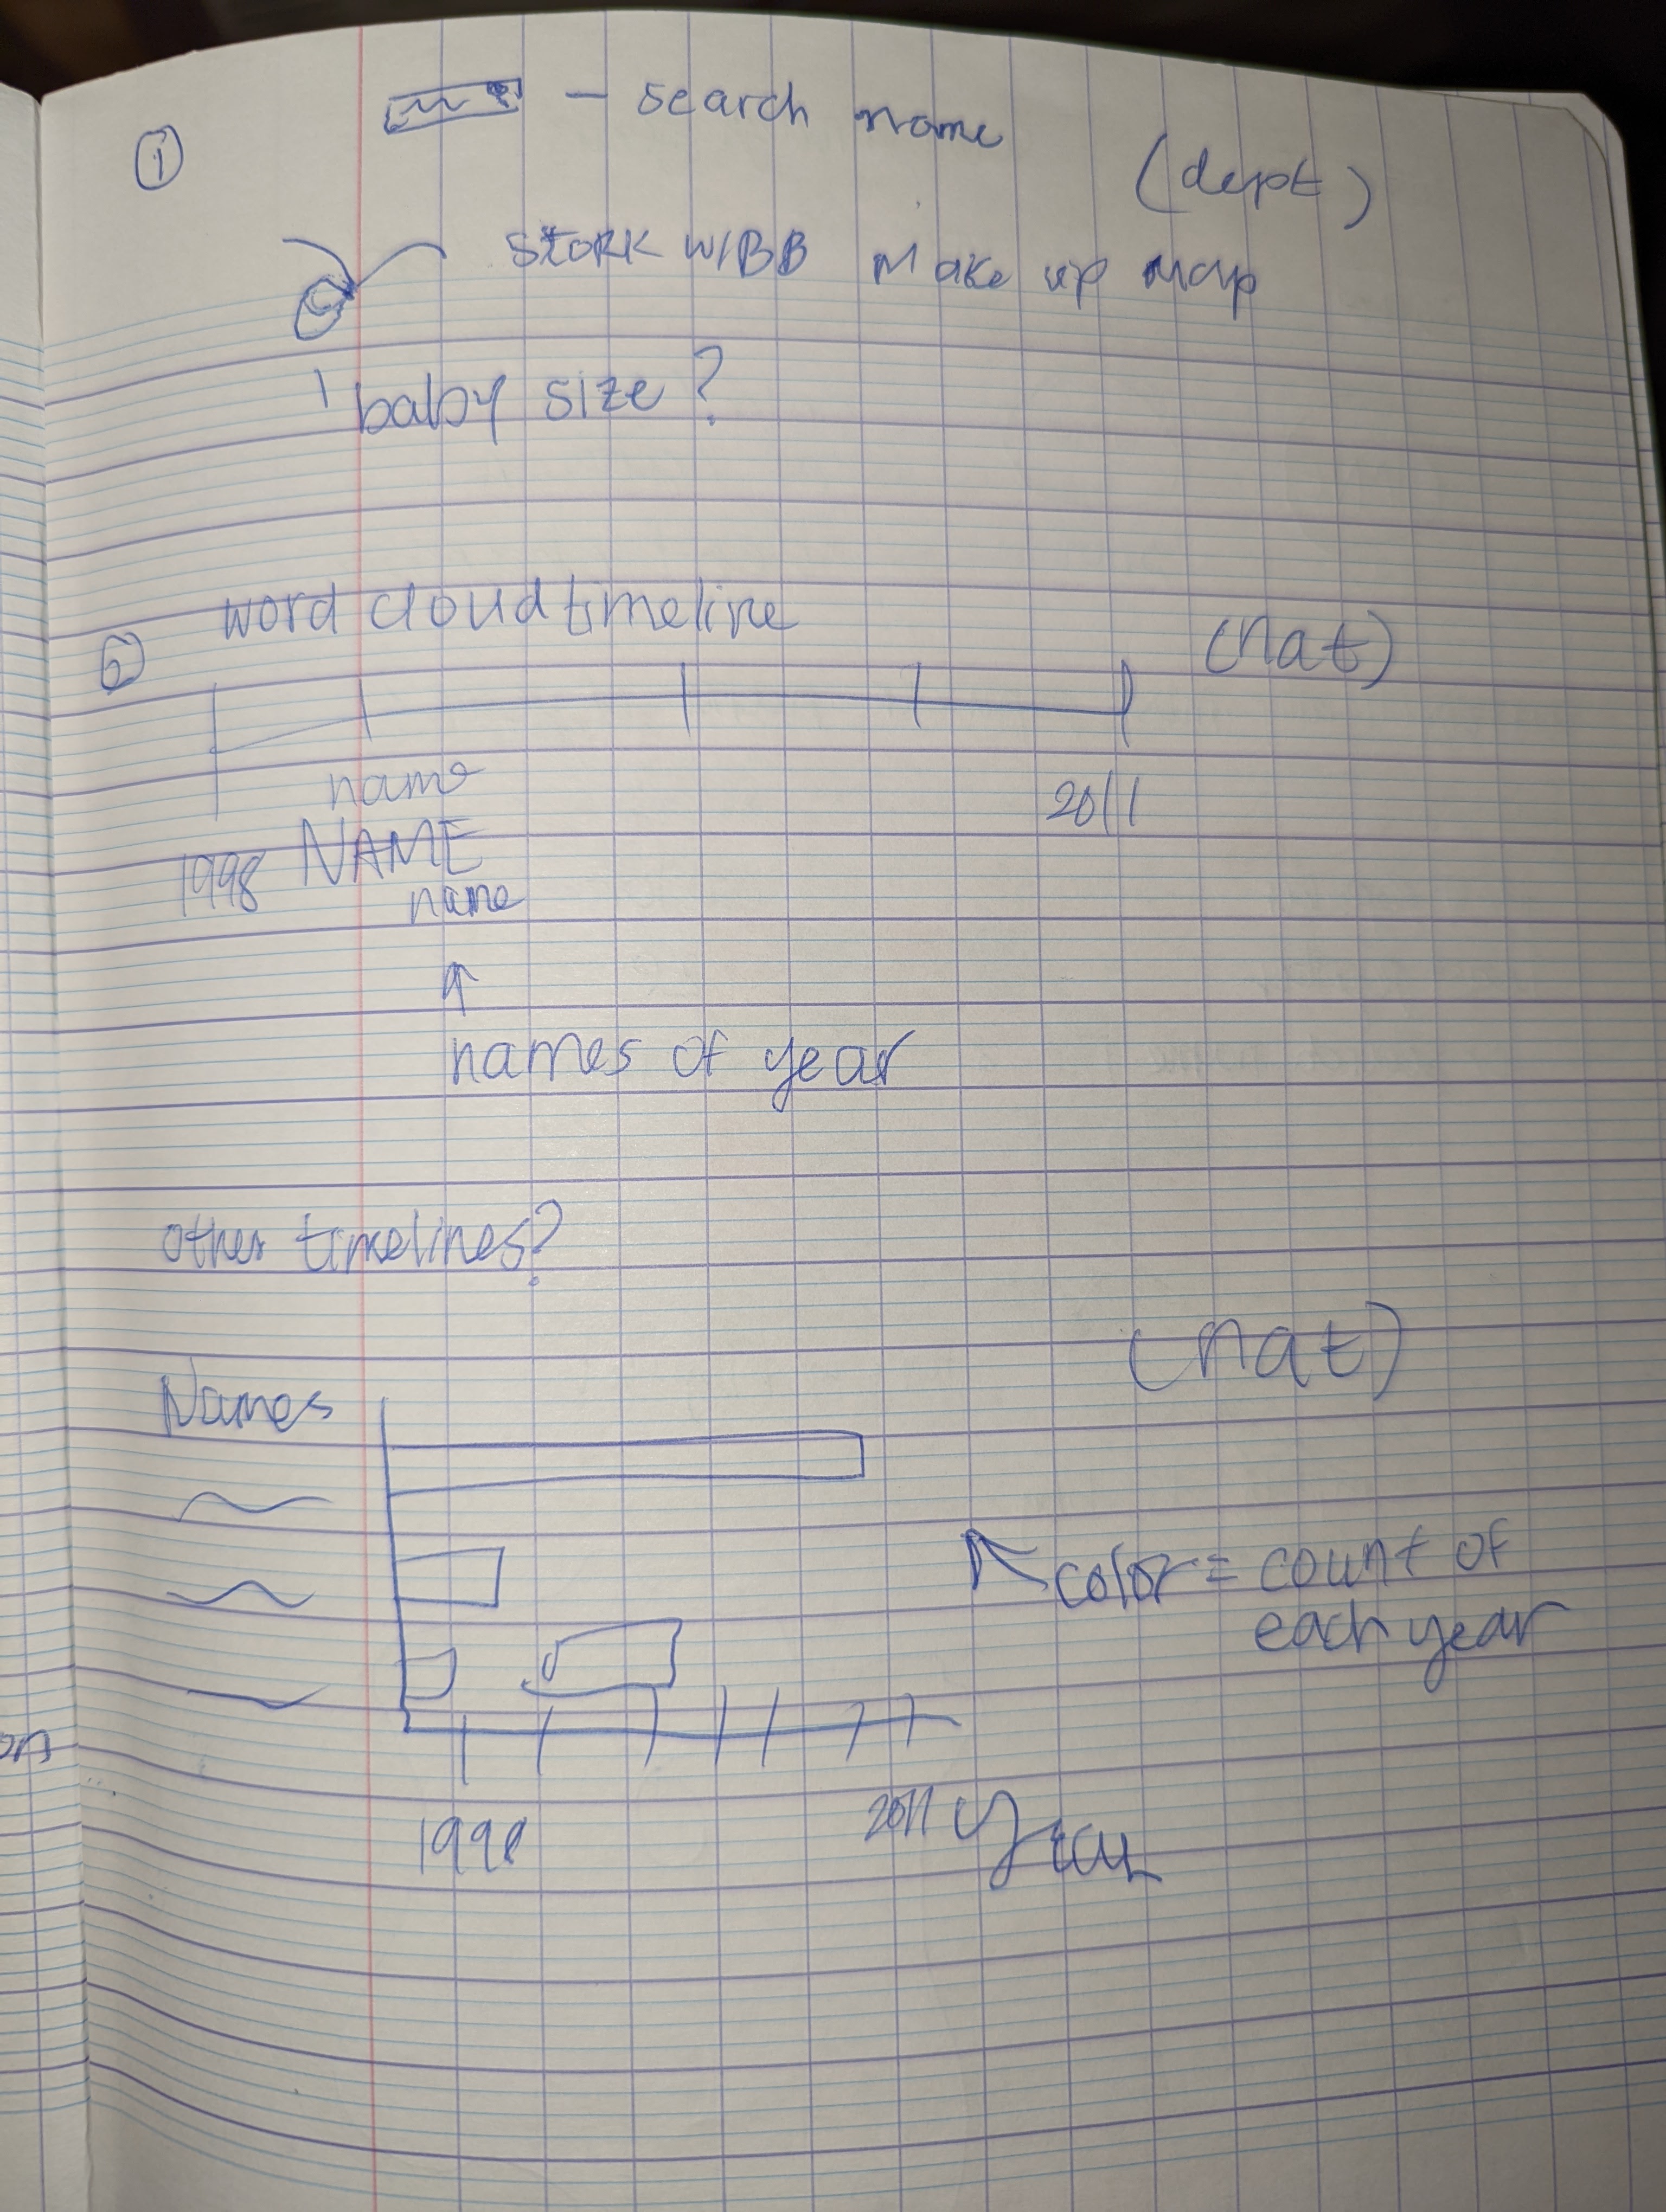 ① — search name
(dept)
STORK W/BB Make up map
baby size?
word cloud timeline
② (nat)
name
2011
1998 NAME
name
names of year
other timelines?
(nat)
Names
color = count of
each year
1998 2011 Year